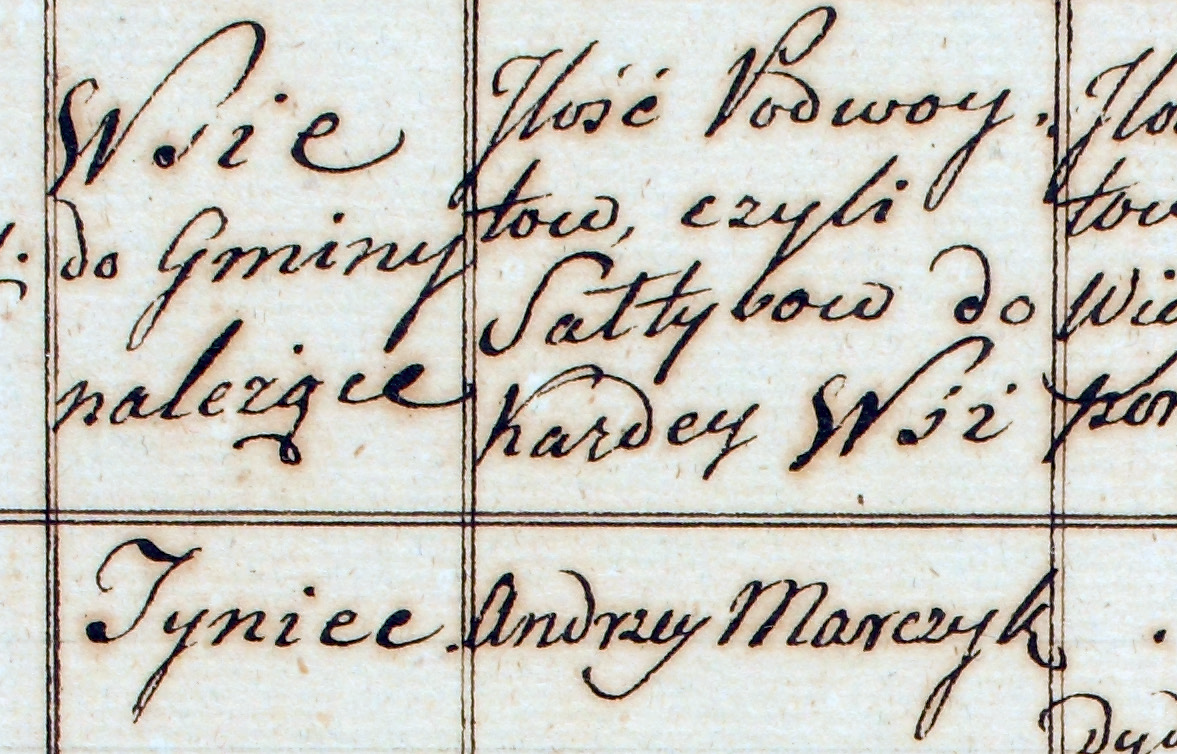 Wsie
do Gminy
należące
Jlość Podwoy.
tow, czyli
Sałtysow do
kazdey Wsi
Jlo
tow
Wid
Tyniec.
Andrzey Marczyk